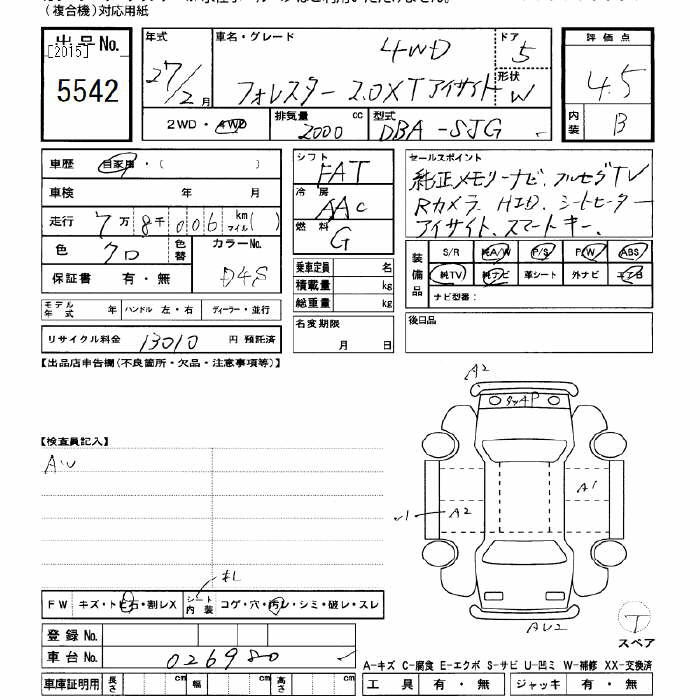 (複合機)対応用紙
出品No.
[2015]
5542
年式
27/2月
車名・グレード
4WD
フォレスター 2.0XTアイサイト
ドア
5
形状
W
2WD・4WD
排気量
2000
cc
型式
DBA-SJG
評価点
4.5
内装
B
車歴 自家用・( )
車検 年 月
走行 7万8千006 km マイル( )
色 クロ 色替 カラーNo. D4S
保証書 有・無
モデル年式 年 ハンドル 左・右 ディーラー・並行
リサイクル料金 13010 円 預託済
シフト FAT
冷房 AAC
燃料 G
乗車定員 名
積載量 kg
総重量 kg
名変期限
月 日
セールスポイント
純正メモリーナビ、フルセグTV
Rカメラ、HID、シートヒーター
アイサイト、スマートキー、
装備品
S/R 純A/W P/S P/W ABS
純TV 純ナビ 革シート 外ナビ エアB
ナビ型番:
後日品
【出品店申告欄(不良箇所・欠品・注意事項等)】
【検査員記入】
A2
A1
A2
AU2
スペア
FW キズ・トビ石・割レX シート内装 コゲ・穴・汚レ・シミ・破レ・スレ
登録No.
車台No. 026980
車庫証明用 長さ cm 幅 cm 高さ cm
A-キズ C-腐食 E-エクボ S-サビ U-凹ミ W-補修 XX-交換済
工具 有・無 ジャッキ 有・無